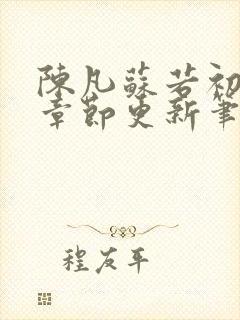 陳凡蘇若初
章節更新筆
程友平